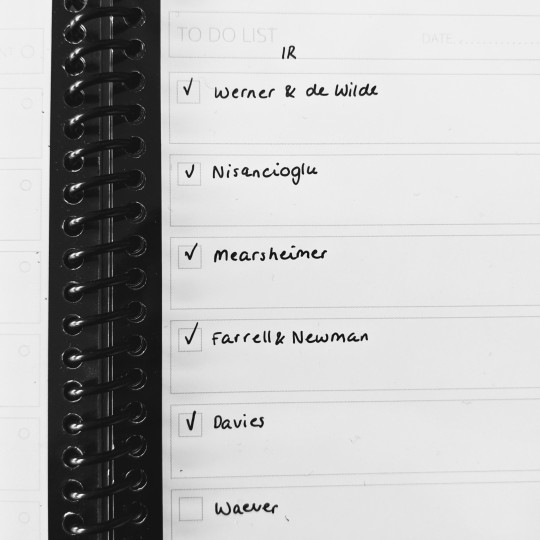 TO DO LIST DATE
IR
Werner & de Wilde
Nisancioglu
Mearsheimer
Farrell & Newman
Davies
Waever